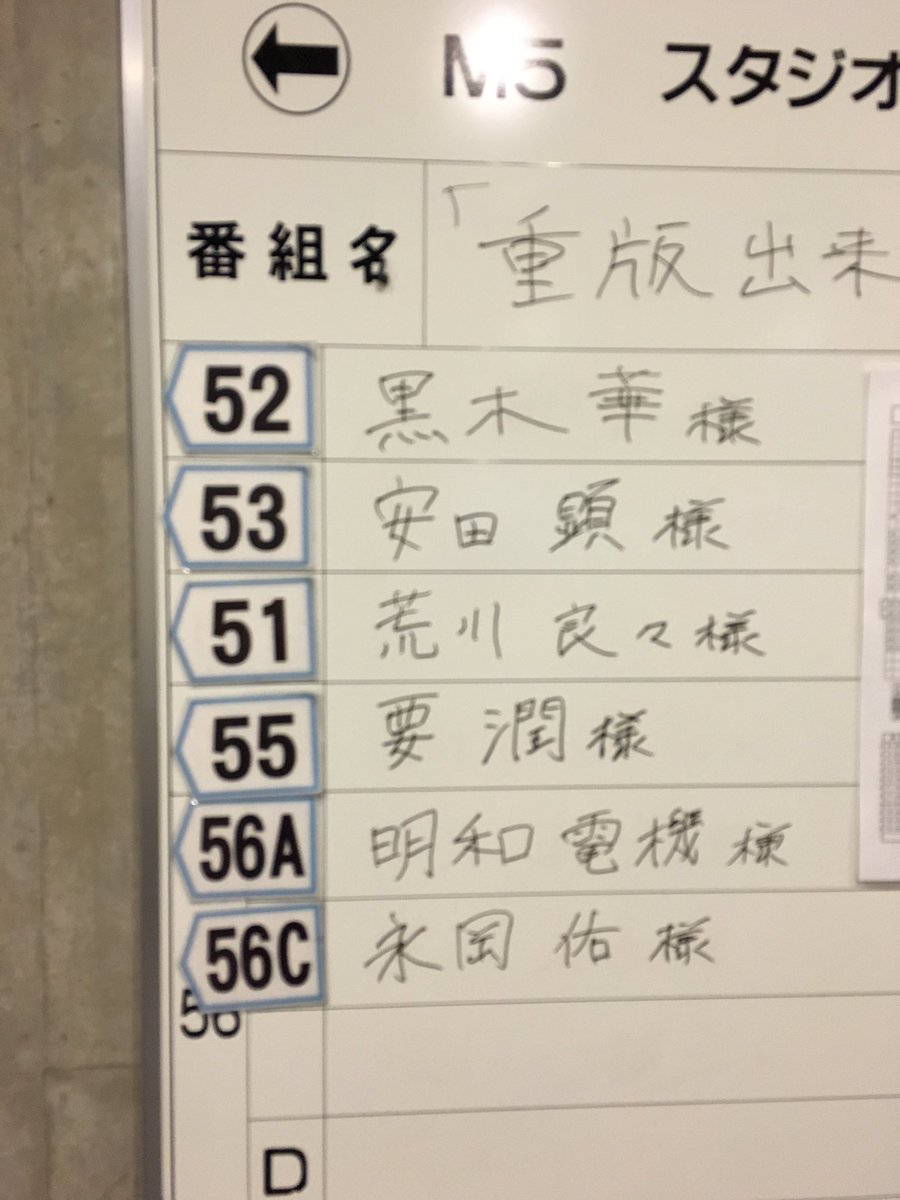 M5 スタジオ
番組名 「重版出来
52 黒木 華 様
53 安田 顕 様
51 荒川 良々 様
55 要 潤 様
56A 明和電機 様
56C 永岡 佑 様
56
D